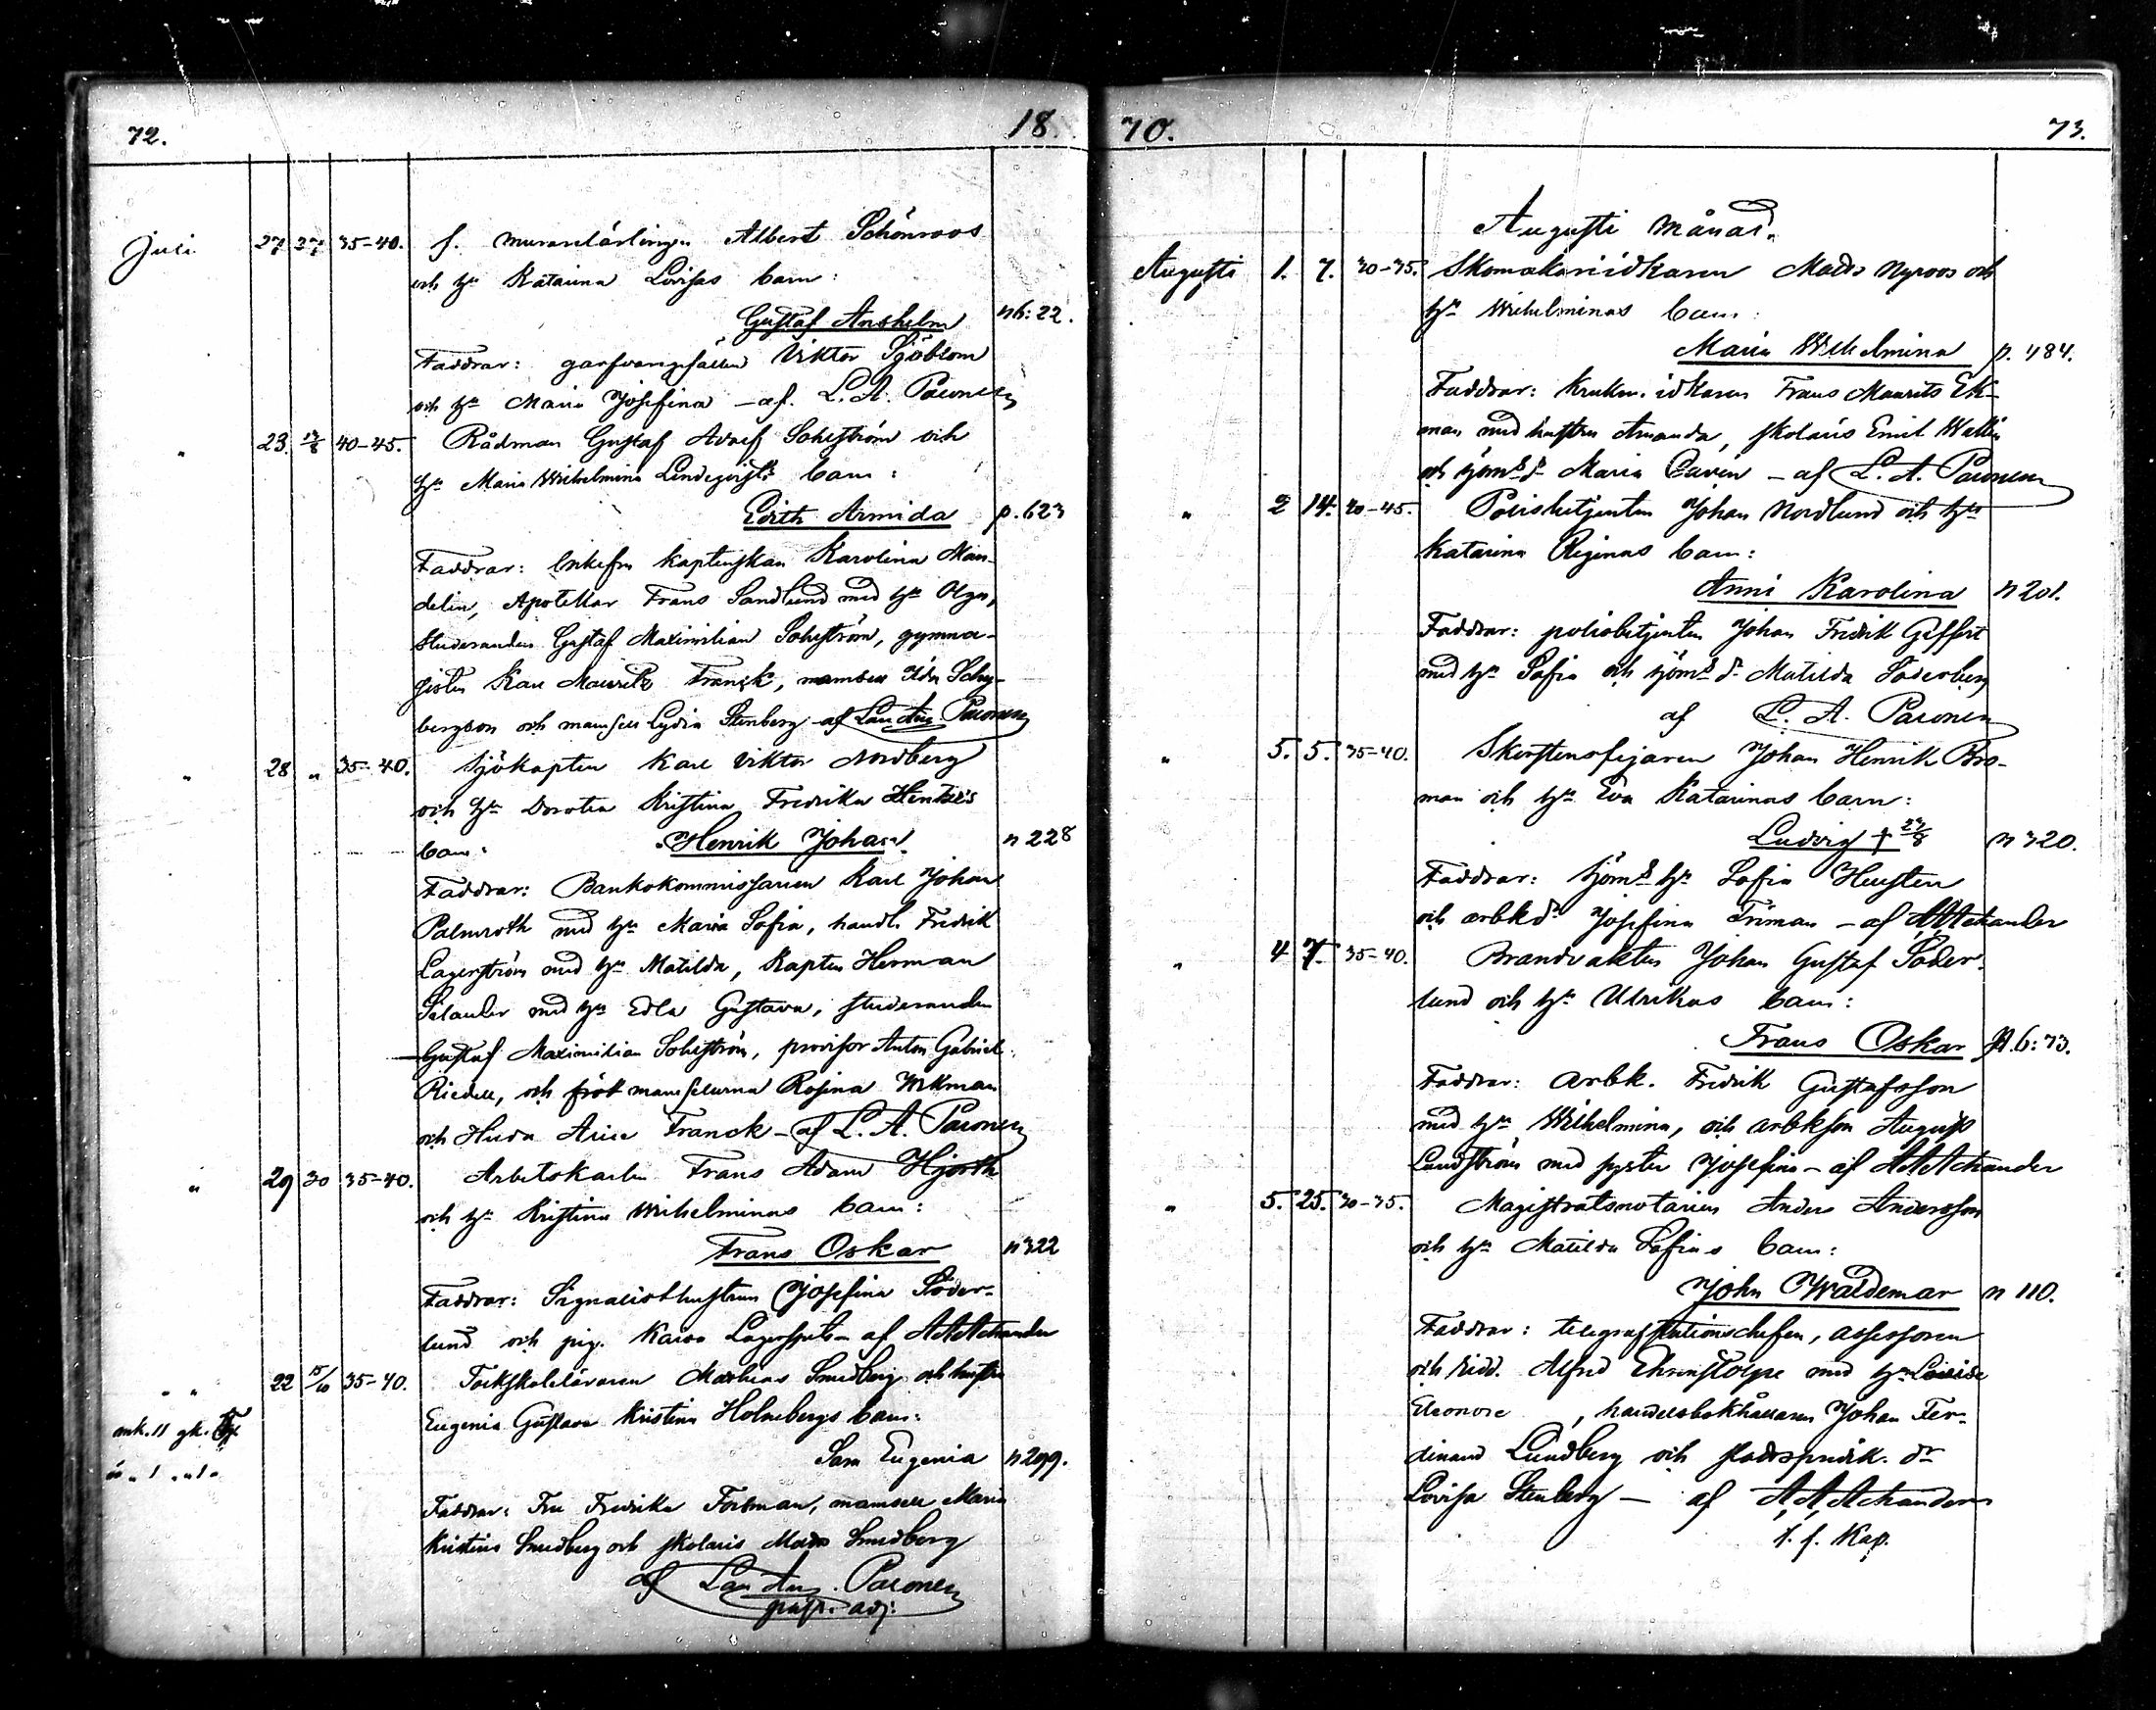 72. 18
Juli 27 27 35-40. f. murarelärlingen Albert Schönroos
och hu Katarina Lovisas barn:
Gustaf Anshelm n 6:22.
Faddrar: garfvaregesällen Viktor Sjöblom
och hu Maria Josefina - af L. A. Paconen
" 23. 40-45. Rådman Gustaf Adolf Sohlström och
hu Maria Wilhelmina Lindeqvists barn:
Edith Armida p. 623
Faddrar: Enkefru kaptenskan Karolina Man-
delin, Apotekar Frans Sandlund med hu Olga,
Studeranden Gustaf Maximilian Sohlström, gymna-
sisten Karl Mauritz Franck, mamsell Ida Schy-
bergson och mamsell Lydia Stenberg - af Lau Aug Paconen
" 28 " 35-40. Sjökapten Karl Viktor Nordberg
och hu Dorotea Kristina Fredrika Hentzes
barn: Henrik Johan. n 228
Faddrar: Bankokommissarien Karl Johan
Palmroth med hu Maria Sofia, handl. Fredrik
Lagerström med hu Matilda, Kapten Herman
Selander med hu Edla Gustava, studeranden
Gustaf Maximilian Sohlström, provisor Anton Gabriel
Riedell, och mamsellerna Rosina Wikman
och Hulda Alice Franck - af L. A. Paconen
" 29 30 35-40. Arbetskarlen Frans Adam Hjorth
och hu Kristina Wilhelminas barn:
Frans Oskar n 322
Faddrar: Signalisthustrun Josefina Söder-
lund och pig. Karin - af A A Achander
" " 22 15/10 35-40. Folkskoleläraren Mathias Smedberg och hustru
Eugenia Gustava Kristina Holmbergs barn:
Sara Eugenia n 299.
Faddrar: Fru Fredrika Forsman, mamsell Maria
Kristina Smedberg och skolaris Mads Smedberg
af Lau Aug. Paconen
past. adj:
70. 73.
Augusti Månad.
Augusti 1. 7. 30-35. Skomakeriidkaren Mads Nyroos och
hu Wilhelminas barn:
Maria Wilhelmina p. 484.
Faddrar: krukm. idkaren Frans Maurits Ek-
man med hustru Amanda, skolaris Emil Wallin
och sjöms dr Maria Cavén - af L. A. Paconen
" 2 14. 40-45. Polisbetjenten Johan Nordlund och hu
Katarina Reginas barn:
Anni Karolina n 201.
Faddrar: polisbetjenten Johan Fredrik Geffert
med hu Sofia och sjöms dr Matilda Söderberg
af L. A. Paconen
" 5. 5. 35-40. Skorstensfejaren Johan Henrik Bro-
man och hu Eva Katarinas barn:
Ludvig † n 320.
Faddrar: Sjöms hu Sofia Hellsten
och arbk dr Josefina Friman - af A A Achander
" 4 7. 35-40. Brandvakten Johan Gustaf Söder-
lund och hu Ulrikas barn:
Frans Oskar p. 6:73.
Faddrar: arbk. Fredrik Gustafsson
med hu Wilhelmina, och arbkson August
Lundström med syster Josefina - af A A Achander
" 5. 25. 30-35. Magistratsnotarien Anders Andersson
och hu Matilda Sofias barn:
John Waldemar n 110.
Faddrar: telegrafstationschefen, assessoren
och ridd. Alfred Ehrnstolpe med hu Lovisa
Eleonore, handelsbokhållaren Johan Fer-
dinand Lundberg och stadspredik. dr
Lovisa Stenberg - af A. A. Achander
t. f. Kap.